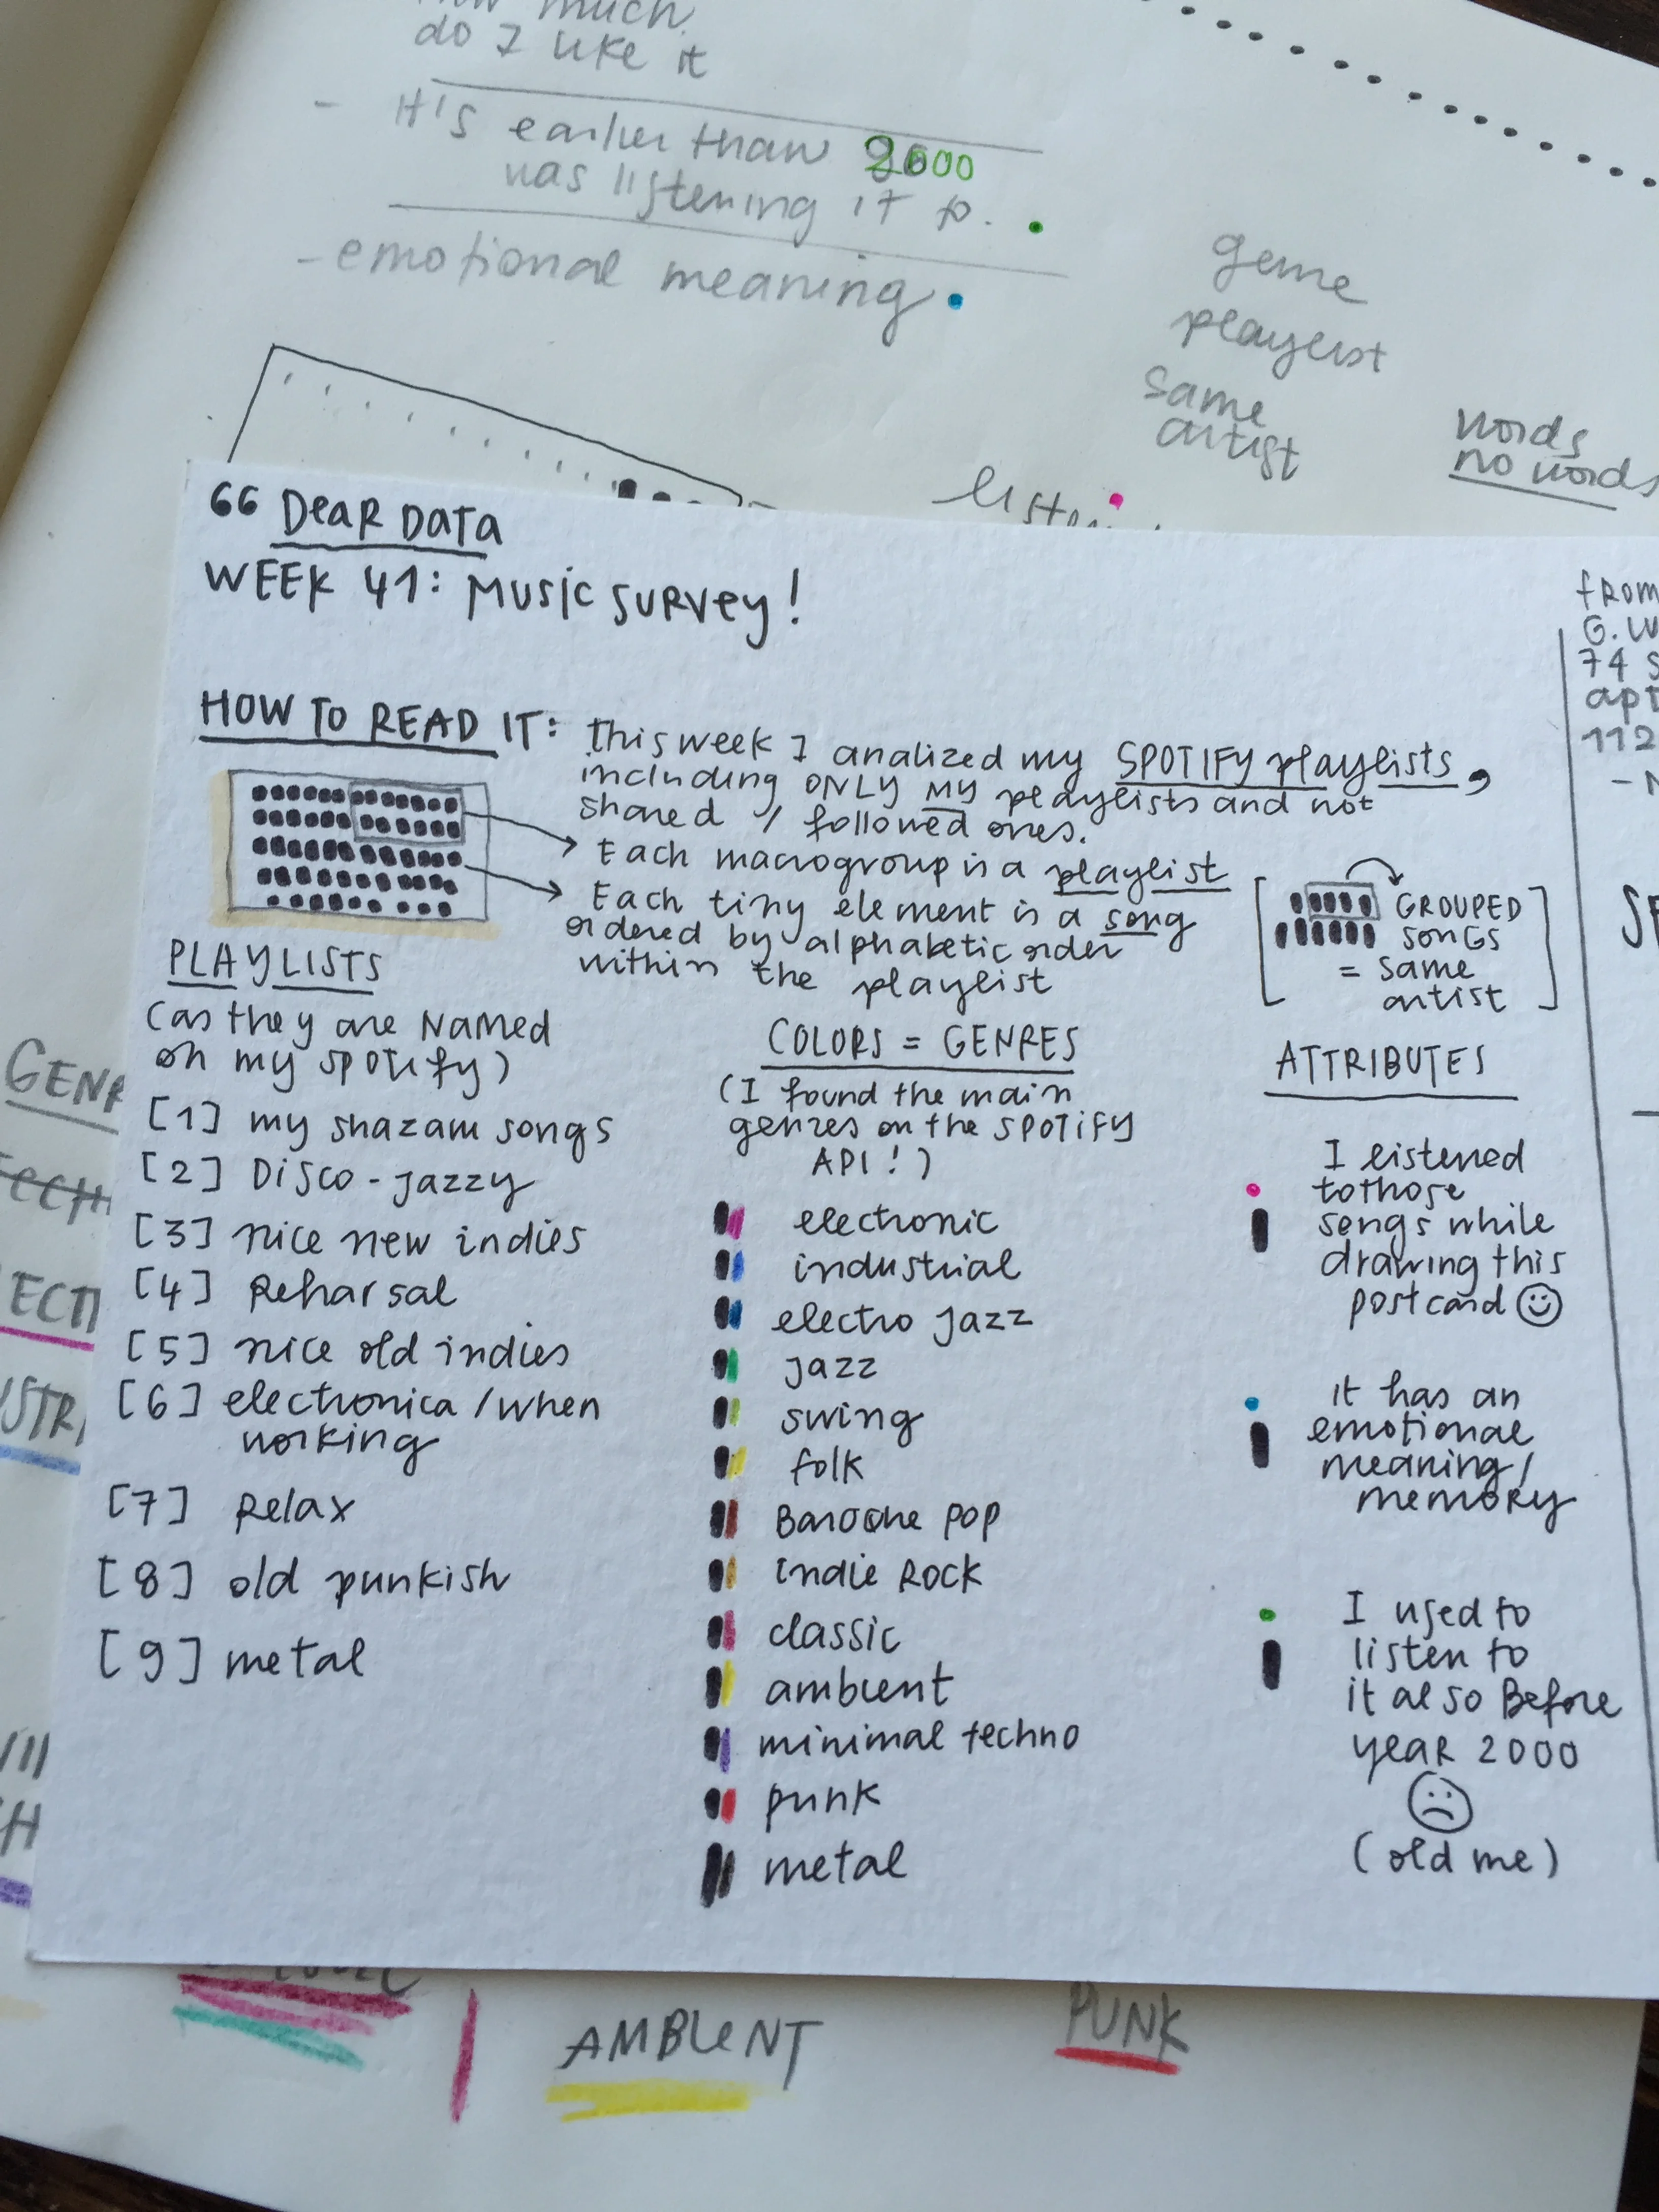 much
do I like it
- It's earlier than 2000
was listening it to.
- emotional meaning
genre
playlist
same
artist
words
no words
66 Dear Data
WEEK 41: Music survey!
HOW TO READ IT: this week I analized my SPOTIFY playlists,
including ONLY MY playlists and not
shared / followed ones.
Each macrogroup is a playlist
Each tiny element is a song
ordered by alphabetic order
within the playlist
GROUPED
songs
= same
artist
PLAYLISTS
(as they are named
on my spotify)
[1] my shazam songs
[2] Disco-jazzy
[3] nice new indies
[4] Reharsal
[5] nice old indies
[6] electronica/when
working
[7] Relax
[8] old punkish
[9] metal
COLORS = GENRES
(I found the main
genres on the SPOTIFY
API!)
electronic
industrial
electro jazz
jazz
swing
folk
Baroque pop
indie Rock
classic
ambient
minimal techno
punk
metal
ATTRIBUTES
I listened
to those
songs while
drawing this
postcard
it has an
emotional
meaning/
memory
I used to
listen to
it also Before
year 2000
(old me)
from
G.
74
112
AMBIENT
PUNK